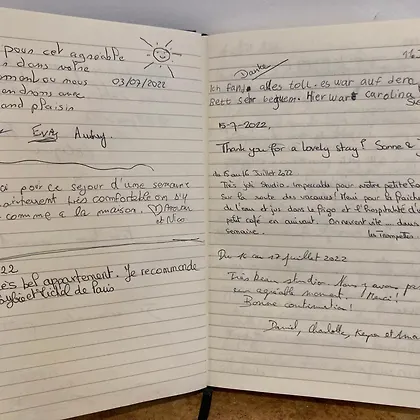 pour cet agréable
dans votre
ou nous 03/07/2022
endrons avec
and plaisir
Evas Audry.
pour ce séjour d'une semaine
très comfortable on s'y
comme a la maison.
et Nico
22
ès bel appartement. Je recommande
de Paris
Danke
Ich fand alles toll. es war auf dem
Bett sehr bequem. Hier war carolina!
15-7-2022,
Thank you for a lovely stay! Sanne &
du 6 au 16 Juillet 2022
Très joli Studio. Impeccable pour notre petite
Sur la route des vacances! Merci pour la
de l'eau et jus dans le frigo et l'hospitalité d'
petit café en arrivant. On revient vite... dans
Semaine.
les Trompettes
Du 16 au 17 juillet 2022
Très beau studio. Nous y avons
un agréable moment. Merci!
Bonne continuation!
Daniel, Charlotte, et